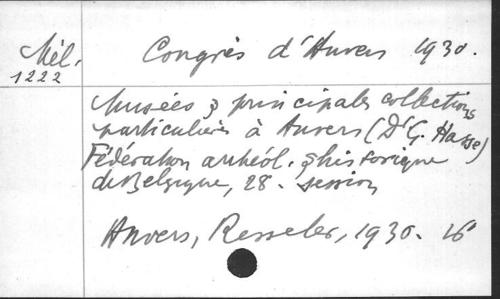 Mél.
1222
Congrès d'Anvers 1930.
Musées & principales collections
particulières à Anvers (Dr G. Hasse)
Fédération archéol. & historique
de Belgique, 28. session
Anvers, Resseler, 1930. 16°